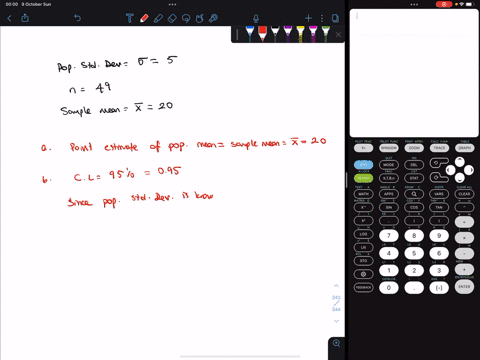 00:00 9 October Sun
Pop. Std. Dev = σ = 5
n = 49
Sample mean = x̄ = 20
a. Point estimate of pop. mean = sample mean = x̄ = 20
b. C.L = 95% = 0.95
Since pop. std. dev. is know
WINDOW ZOOM TRACE GRAPH
MODE DEL
X,T,θ,n STAT
MATH APPS PRGM VARS CLEAR
SIN COS TAN
7 8 9
LOG 4 5 6
LN 1 2 3
STO
0 . (-) ENTER
FEEDBACK
343
344